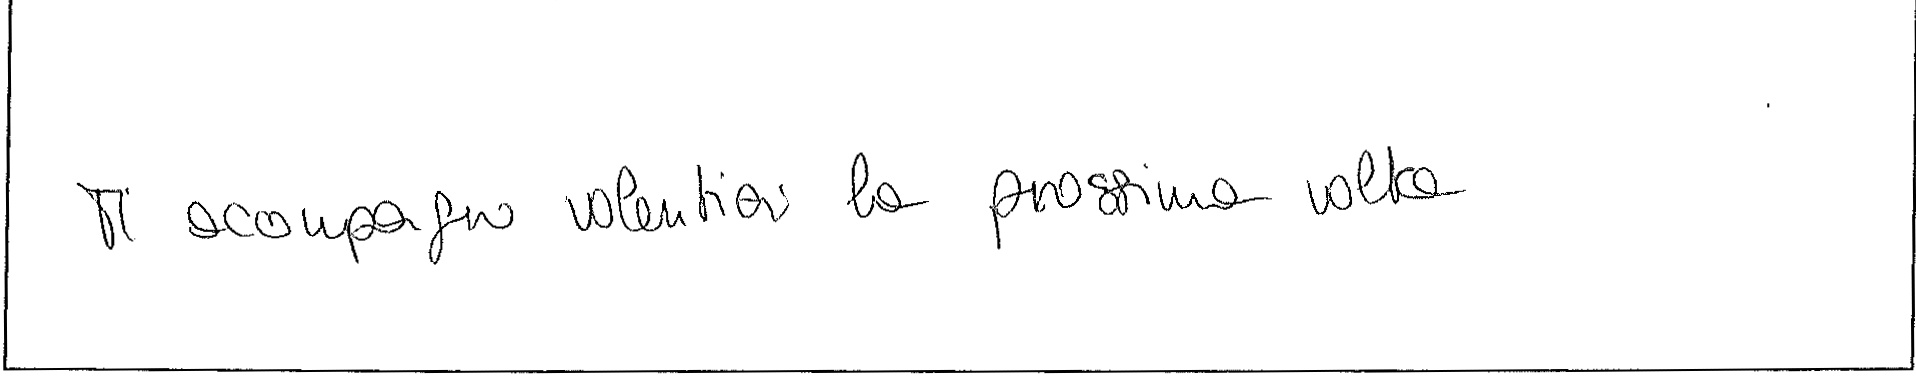 Ti acompagno volentieri la prossima volta